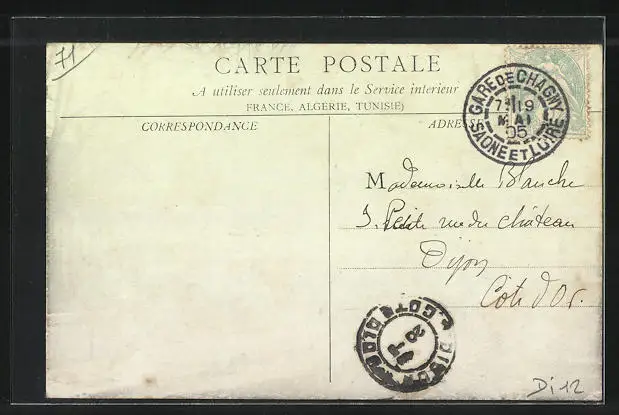 71
CARTE POSTALE
A utiliser seulement dans le Service intérieur
FRANCE, ALGERIE, TUNISIE)
CORRESPONDANCE
ADRESSE
GARE DE CHAGNY
7 19
MAI
05
SAONE ET LOIRE
Mademoiselle Blanche
3. Petite rue du château
Dijon
Côte d'Or.
DIJON
20
COTE D'OR
Di 12